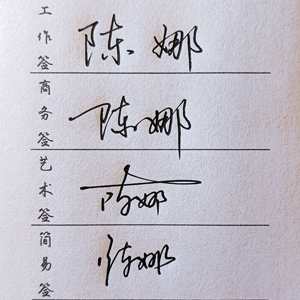 工作签
陈娜
商务签
陈娜
艺术签
陈娜
简易签
陈娜